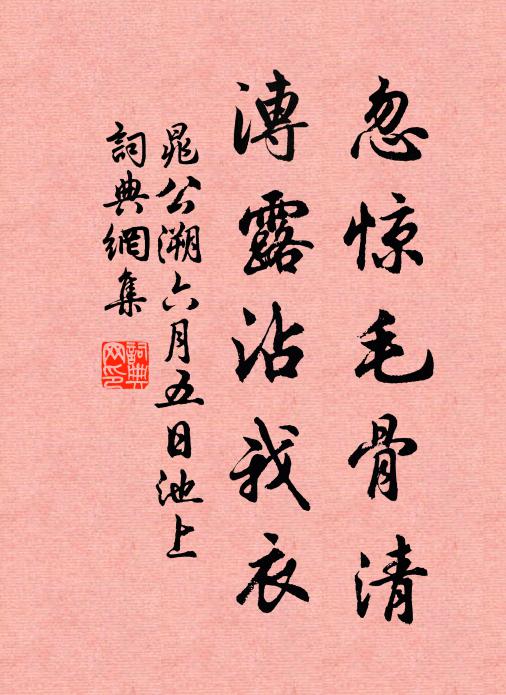 忽惊毛骨清
漙露沾我衣
晁公溯六月五日池上
詞典網集
詞典网印